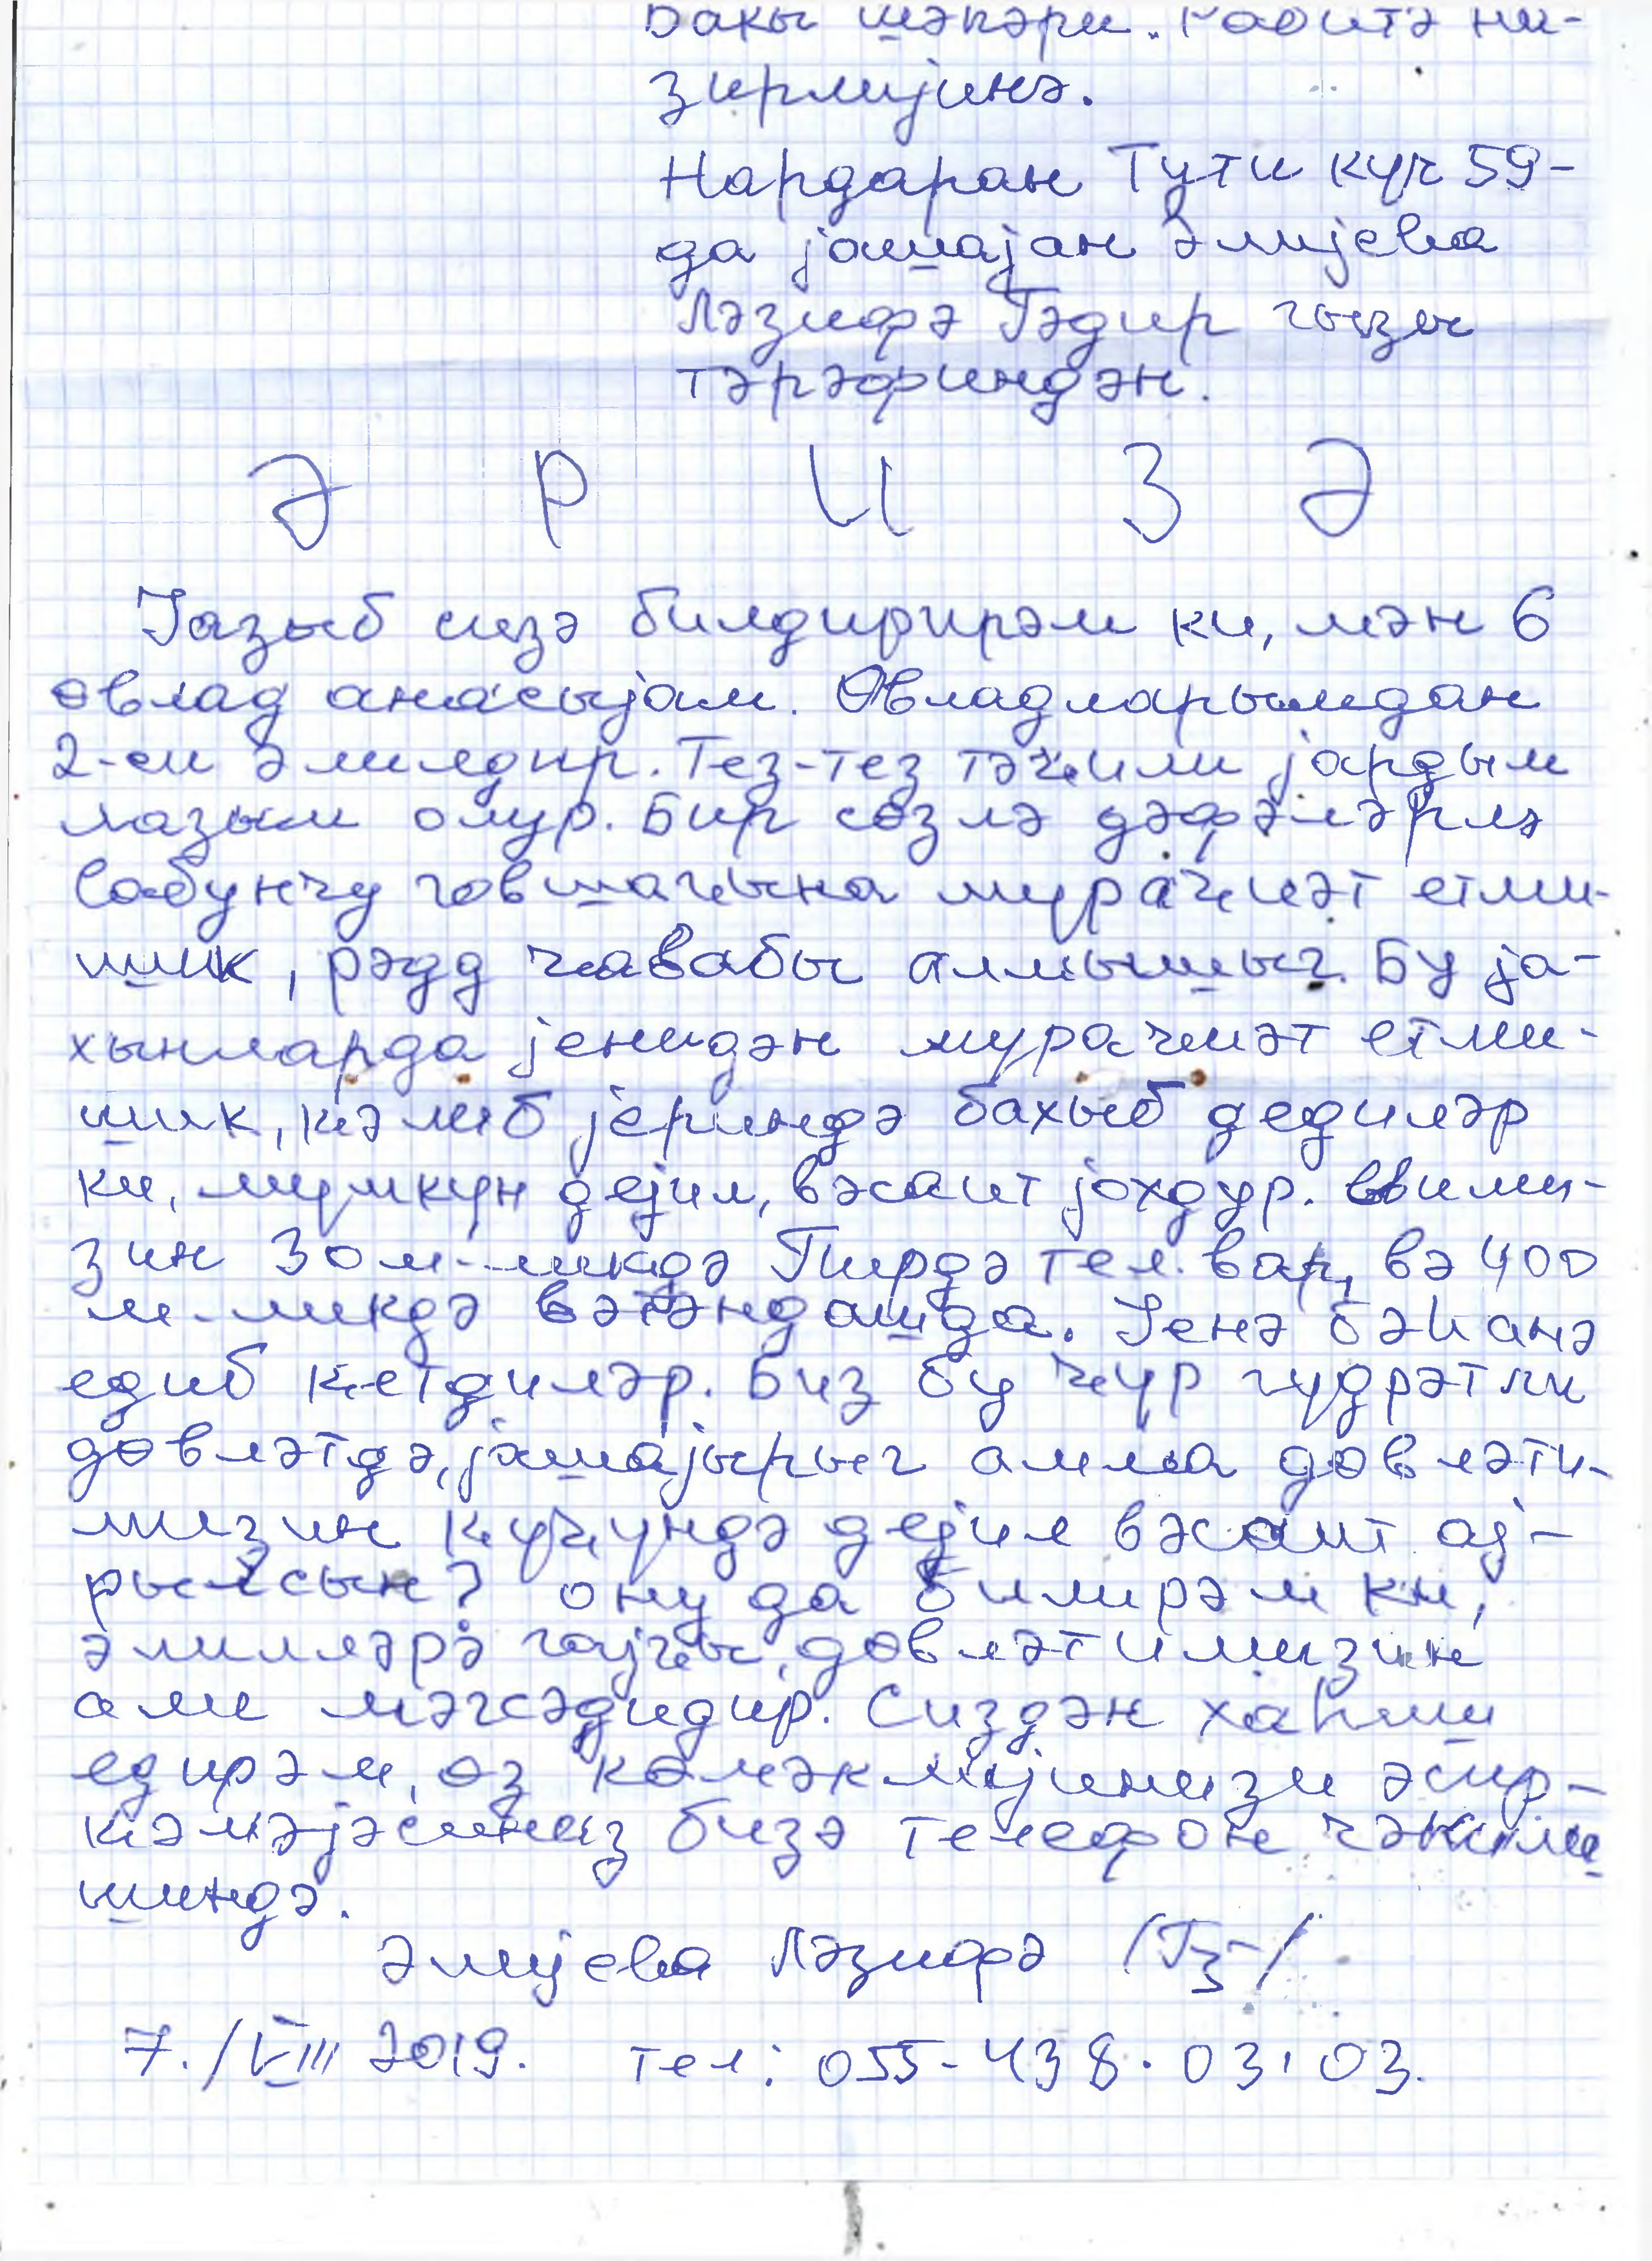 Бакы шәһәри. Рабитә на-
зирлијинә.
Нардаран Тути күч 59-
да јашајан Әлијева
Ләзифә Гәдир гызы
тәрәфиндән.
Ә Р И З Ә
Јазыб сизә билдирирәм ки, мән 6
өвлад анасыјам. Өвладларымдан
2-си әлилдир. Тез-тез тәҹили јардым
лазым олур. Бир сөзлә дәфәләрлә
Сабунчу говшағына мураҹиәт етми-
шик, рәдд ҹавабы алмышыг. Бу ја-
хынларда јенидән мураҹиәт етми-
шик, ҝәлиб јериндә бахыб дедиләр
ки, мумкүн дејил, вәсаит јохдур. Евими-
зин 30 м-ликдә Пирдә тел. вар, вә 400
м-ликдә вәтәндашда. Јенә бәһанә
едиб ҝетдиләр. Биз бу ҹүр гүдрәтли
дөвләтдә, јашајырыг амма дөвләти-
мизин ҝүҹүндә дејил вәсаит ај-
рылсын? ону да билирәм ки,
әлилләрә гајғы, дөвләтимизин
али мәгсәдидир. Сиздән хаһиш
едирәм, өз көмәклијинизи әсир-
ҝәмәјәсиниз бизә телефон чәкили
шиндә.
Әлијева Ләзифә
7./VIII 2019. тел: 055-438.03.03.